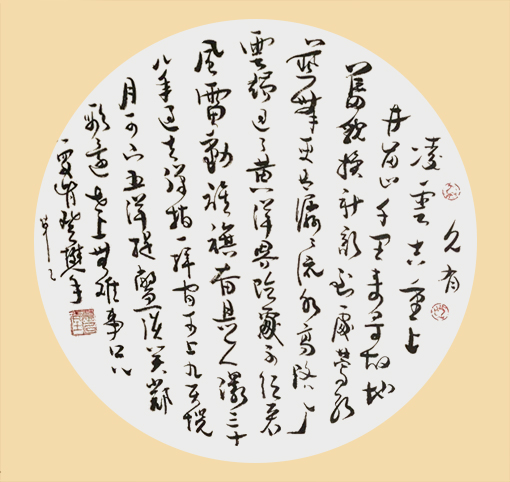 久有
凌雲志重上
井崗山千里来尋故地
舊貌換新顔到處鶯歌
燕舞更有潺潺流水高路入
雲端過了黄洋界險處不須看
風雷動旌旗奮是人寰三十
八年過去彈指一揮間可上九天攬
月可下五洋捉鱉談笑凱
歌還世上無難事只
要肯登攀